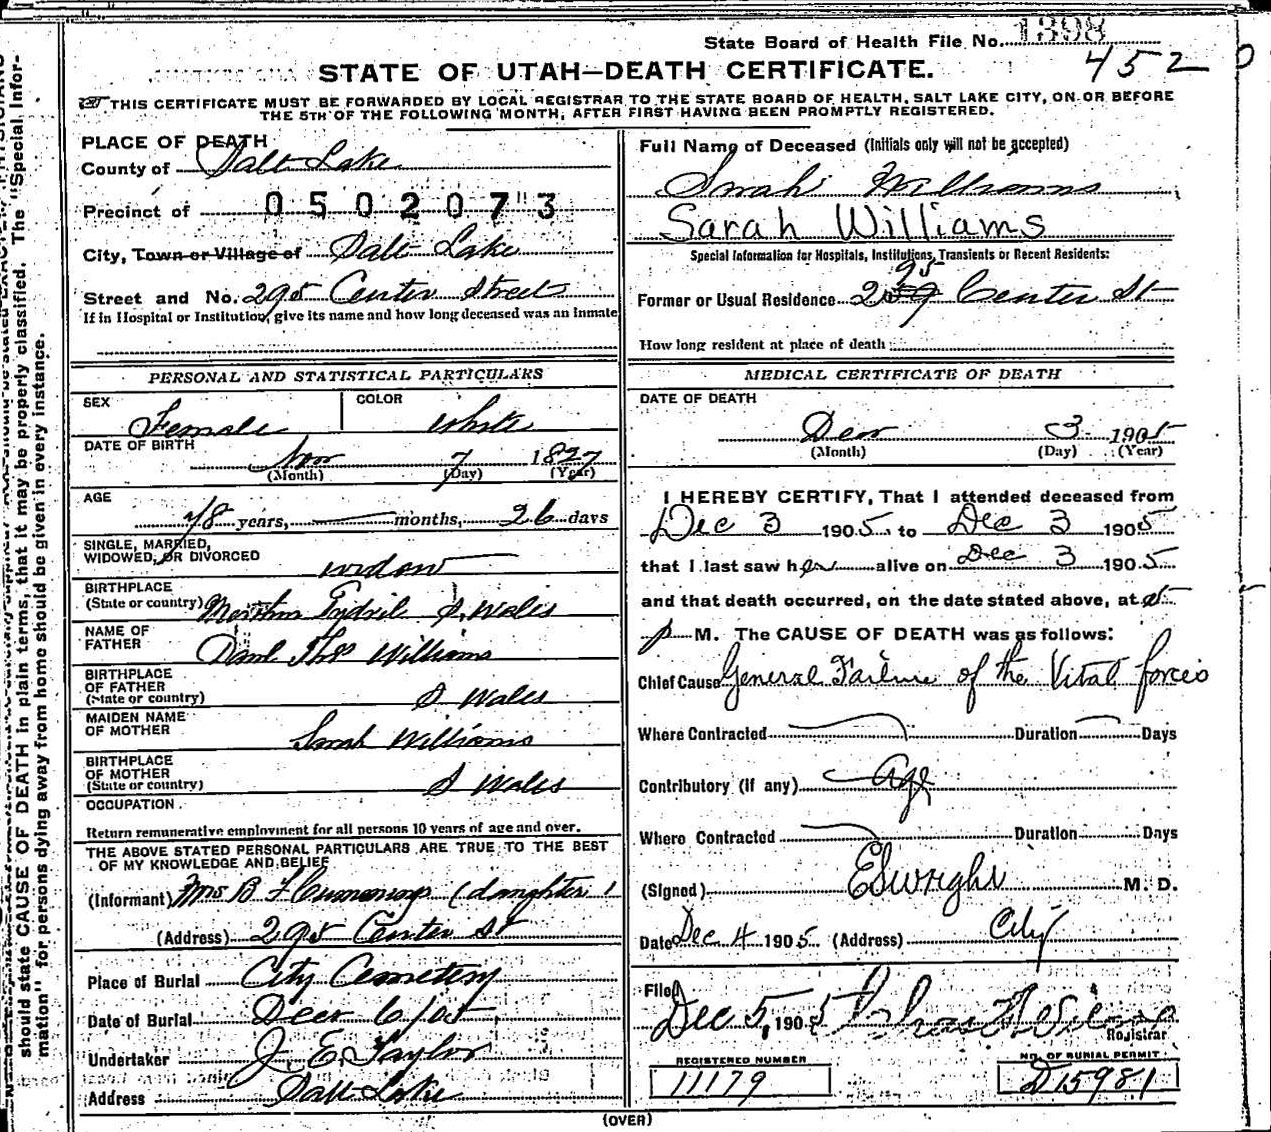 State Board of Health File No. 1398
452
STATE OF UTAH—DEATH CERTIFICATE.
THIS CERTIFICATE MUST BE FORWARDED BY LOCAL REGISTRAR TO THE STATE BOARD OF HEALTH, SALT LAKE CITY, ON OR BEFORE
THE 5TH OF THE FOLLOWING MONTH, AFTER FIRST HAVING BEEN PROMPTLY REGISTERED.
PLACE OF DEATH
County of Salt Lake
Precinct of 0502073
City, Town or Village of Salt Lake
Street and No. 295 Center Street
If in Hospital or Institution, give its name and how long deceased was an inmate
PERSONAL AND STATISTICAL PARTICULARS
SEX Female COLOR White
DATE OF BIRTH Nov 7 1827
(Month) (Day) (Year)
AGE 78 years, — months, 26 days
SINGLE, MARRIED,
WIDOWED, OR DIVORCED widow
BIRTHPLACE
(State or country) Merthur Tydvil S. Wales
NAME OF
FATHER Danl Thos Williams
BIRTHPLACE
OF FATHER
(State or country) S Wales
MAIDEN NAME
OF MOTHER Sarah Williams
BIRTHPLACE
OF MOTHER
(State or country) S Wales
OCCUPATION
Return remunerative employment for all persons 10 years of age and over.
THE ABOVE STATED PERSONAL PARTICULARS ARE TRUE TO THE BEST
OF MY KNOWLEDGE AND BELIEF
(Informant) Mrs B F Cummings (daughter)
(Address) 295 Center St
Place of Burial City Cemetery
Date of Burial Dec 6/05
Undertaker J. E. Taylor
Address Salt Lake
Full Name of Deceased (Initials only will not be accepted)
Sarah Williams
Sarah Williams
Special Information for Hospitals, Institutions, Transients or Recent Residents:
95
Former or Usual Residence 259 Center St
How long resident at place of death
MEDICAL CERTIFICATE OF DEATH
DATE OF DEATH
Dec 3 1905
(Month) (Day) (Year)
I HEREBY CERTIFY, That I attended deceased from
Dec 3 1905 to Dec 3 1905
that I last saw her alive on Dec 3 1905
and that death occurred, on the date stated above, at 5
p M. The CAUSE OF DEATH was as follows:
Chief Cause General Failure of the Vital forces
Where Contracted Duration Days
Contributory (if any) Age
Where Contracted Duration Days
(Signed) M. D.
Date Dec 4 1905 (Address) City
Filed
Dec 5, 1905
Registrar
REGISTERED NUMBER
11179
NO. OF BURIAL PERMIT
D15981
(OVER)
should state CAUSE OF DEATH in plain terms, that it may be properly classified. The "Special Infor-
mation" for persons dying away from home should be given in every instance.